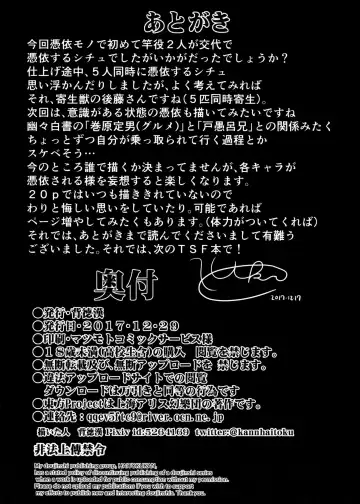 あとがき
今回憑依モノで初めて竿役２人が交代で
憑依するシチュでしたがいかがだったでしょうか？
仕上げ途中、５人同時に憑依するシチュ
思い浮かんだりしましたが、よく考えてみれば
それ、寄生獣の後藤さんですね（５匹同時寄生）。
次回は、意識がある状態の憑依も描いてみたいですね
幽々白書の「巻原定男（グルメ）」と「戸愚呂兄」との関係みたく
ちょっとずつ自分が乗っ取られて行く過程とか
スケベそう…
今のところ誰で描くか決まってませんが、各キャラが
憑依される様を妄想すると楽しくなります。
２０ｐではいつも描ききれていないので
わりと悔しい思いをしていたり。可能であれば
ページ増やしてみたくもあります。（体力がついてくれば）
それでは、あとがきまで読んでくださいまして有難う
ございました。それでは、次のＴＳＦ本で！
2017.12.17
奥付
●発行・背徳漢
●発行日・２０１７・１２・２９
●印刷・マツモトコミックサービス様
●１８歳未満（高校生含）の購入　閲覧を禁じます。
●無断転載及び、無断アップロードを禁じます。
●違法アップロードサイトでの閲覧
ダウンロードは万引きと同等の行為です
●東方Projectは上海アリス幻樂団の著作です。
●連絡先：qqev5fte@river.ocn.ne.jp
描いた人　背徳漢　Pixiv id:5264169　twitter:@kannhaitoku
非法上傳禁令
My doujinshi publishing group, HAITOKUKAN,
has a stated policy of discontinuing publishing of a doujinshi series
when a work is uploaded for public consumption without my permission.
Please do not upload my publications if you wish to support
my efforts to publish new and interesting doujinshis. Thank you.